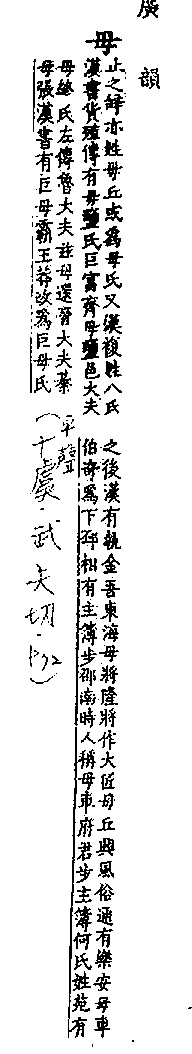 廣韻
毋
止之辭亦姓毋丘或為毋氏又漢複姓八氏
漢書貨殖傳有毋鹽氏巨富齊毋鹽邑大夫
之後漢有執金吾東海毋將隆將作大匠毋丘興風俗通有樂安毋車
伯奇為下邳相有主簿步邵南時人稱毋車府君步主簿何氏姓苑有
毋終氏左傳魯大夫茲毋還晉大夫綦
毋張漢書有巨毋霸王莽改為巨毋氏
(平聲
十虞·武夫切·P72)